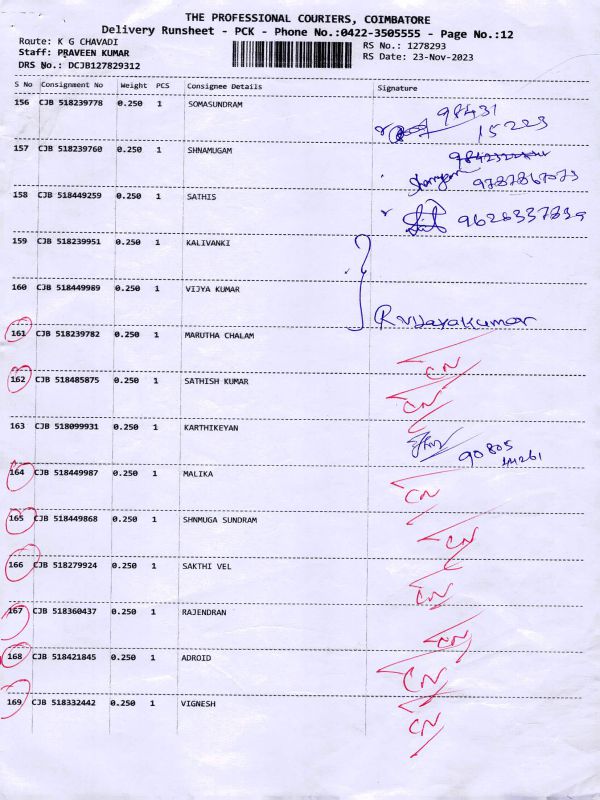 THE PROFESSIONAL COURIERS, COIMBATORE
Delivery Runsheet - PCK - Phone No.:0422-3505555 - Page No.:12
Route: K G CHAVADI
RS No.: 1278293
Staff: PRAVEEN KUMAR
RS Date: 23-Nov-2023
DRS No.: DCJB127829312
S No Consignment No Weight PCS Consignee Details Signature
156 CJB 518239778 0.250 1 SOMASUNDRAM
98431
15223
157 CJB 518239760 0.250 1 SHNAMUGAM
158 CJB 518449259 0.250 1 SATHIS
159 CJB 518239951 0.250 1 KALIVANKI
160 CJB 518449989 0.250 1 VIJYA KUMAR
R Vijayakumar
161 CJB 518239782 0.250 1 MARUTHA CHALAM
CN
162 CJB 518485875 0.250 1 SATHISH KUMAR
CN
163 CJB 518099931 0.250 1 KARTHIKEYAN
90805
164 CJB 518449987 0.250 1 MALIKA
CN
165 CJB 518449868 0.250 1 SHNMUGA SUNDRAM
CN
166 CJB 518279924 0.250 1 SAKTHI VEL
CN
167 CJB 518360437 0.250 1 RAJENDRAN
CN
168 CJB 518421845 0.250 1 ADROID
CN
169 CJB 518332442 0.250 1 VIGNESH
CN